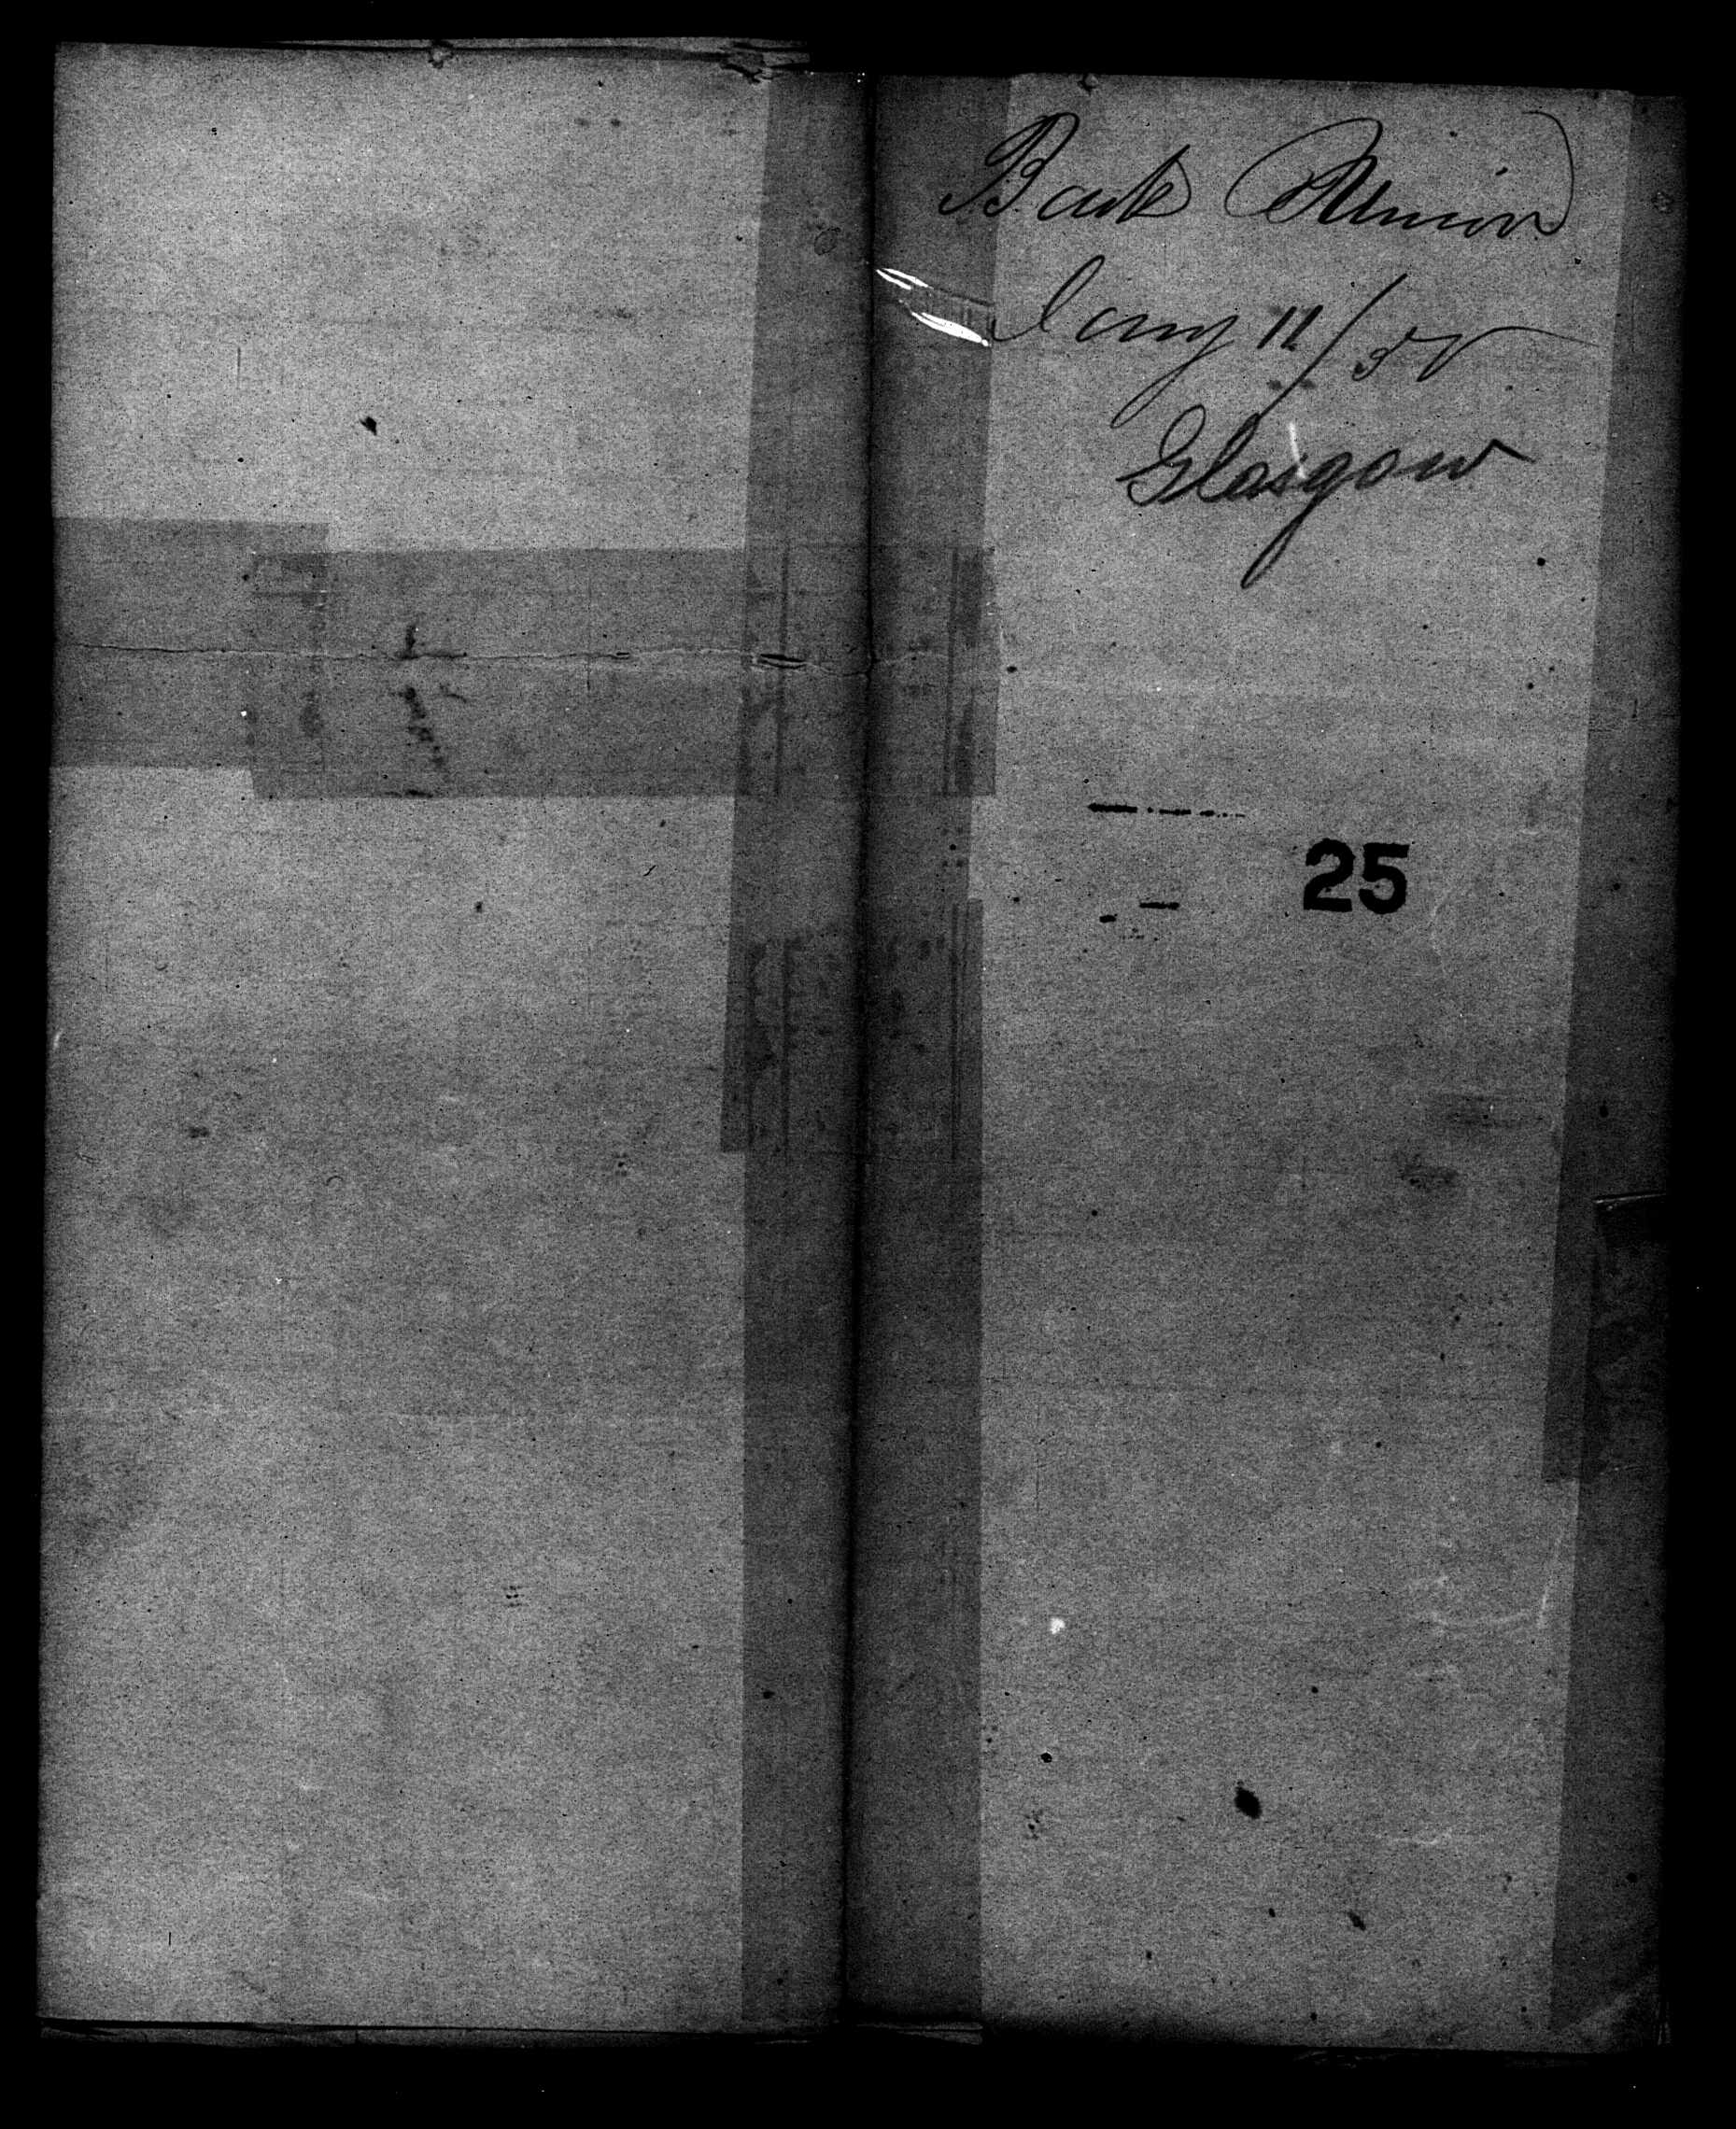 Bark Union
Jany 11/50
Glasgow
25